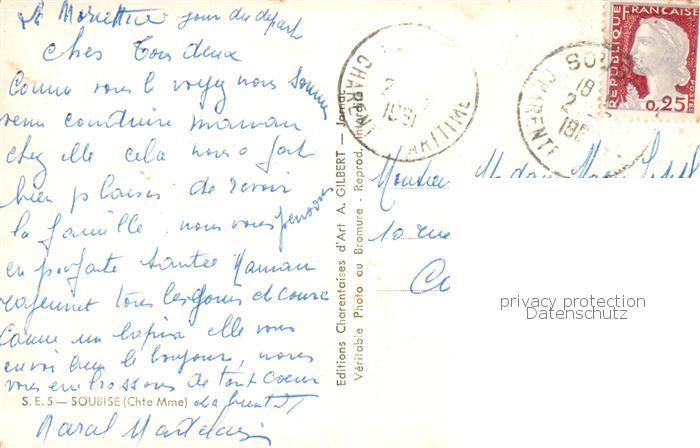 jour du départ
Chers Tous deux
Comme vous le voyez nous sommes
venu conduire maman
chez elle cela nous a fait
bien plaisir de revoir
la famille, nous vous pensons
en parfaite santée Maman
rajeunit tous les jours et coure
Comme un lapin elle vous
envoi bien le bonjour, nous
vous embrassons de tout coeur
S. E. 5 — SOUBISE (Chte Mme)
Marcel
Editions Charentaises d'Art A. GILBERT — Jarnac
Véritable Photo au Bromure - Reprod. Interdite
CHARENTE MARITIME
1961
SOUBISE
18
2
CHARENTE
REPUBLIQUE FRANÇAISE
POSTES
0,25F
Monsieur Madame
10 rue
privacy protection
Datenschutz